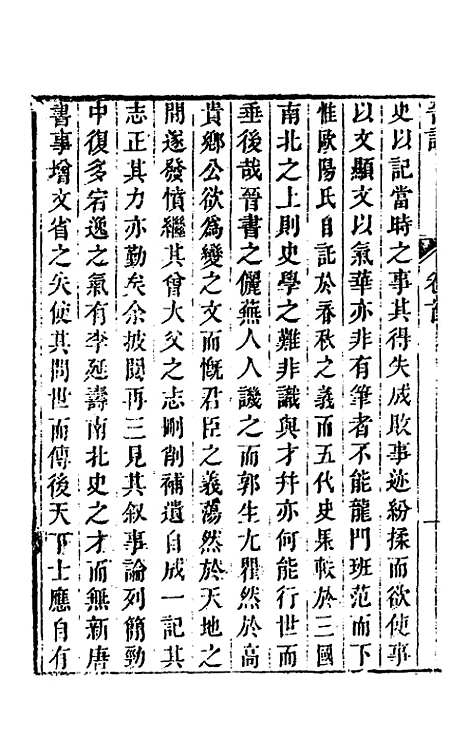 晉記 卷首 一
史以記當時之事其得失成敗事迹紛揉而欲使事
以文顯文以氣華亦非有筆者不能龍門班范而下
惟歐陽氏自託於春秋之義而五代史果軼於三國
南北之上則史學之難非識與才幷亦何能行世而
垂後哉晉書之儷蕪人人譏之而郭生尢瞿然於高
貴鄉公欲爲變之文而慨君臣之義蕩然於天地之
間遂發憤繼其曾大父之志刪削補遺自成一記其
志正其力亦勤矣余披閱再三見其叙事論列簡勁
中復多宕逸之氣有李延壽南北史之才而無新唐
書事增文省之失使其問世而傳後天下士應自有